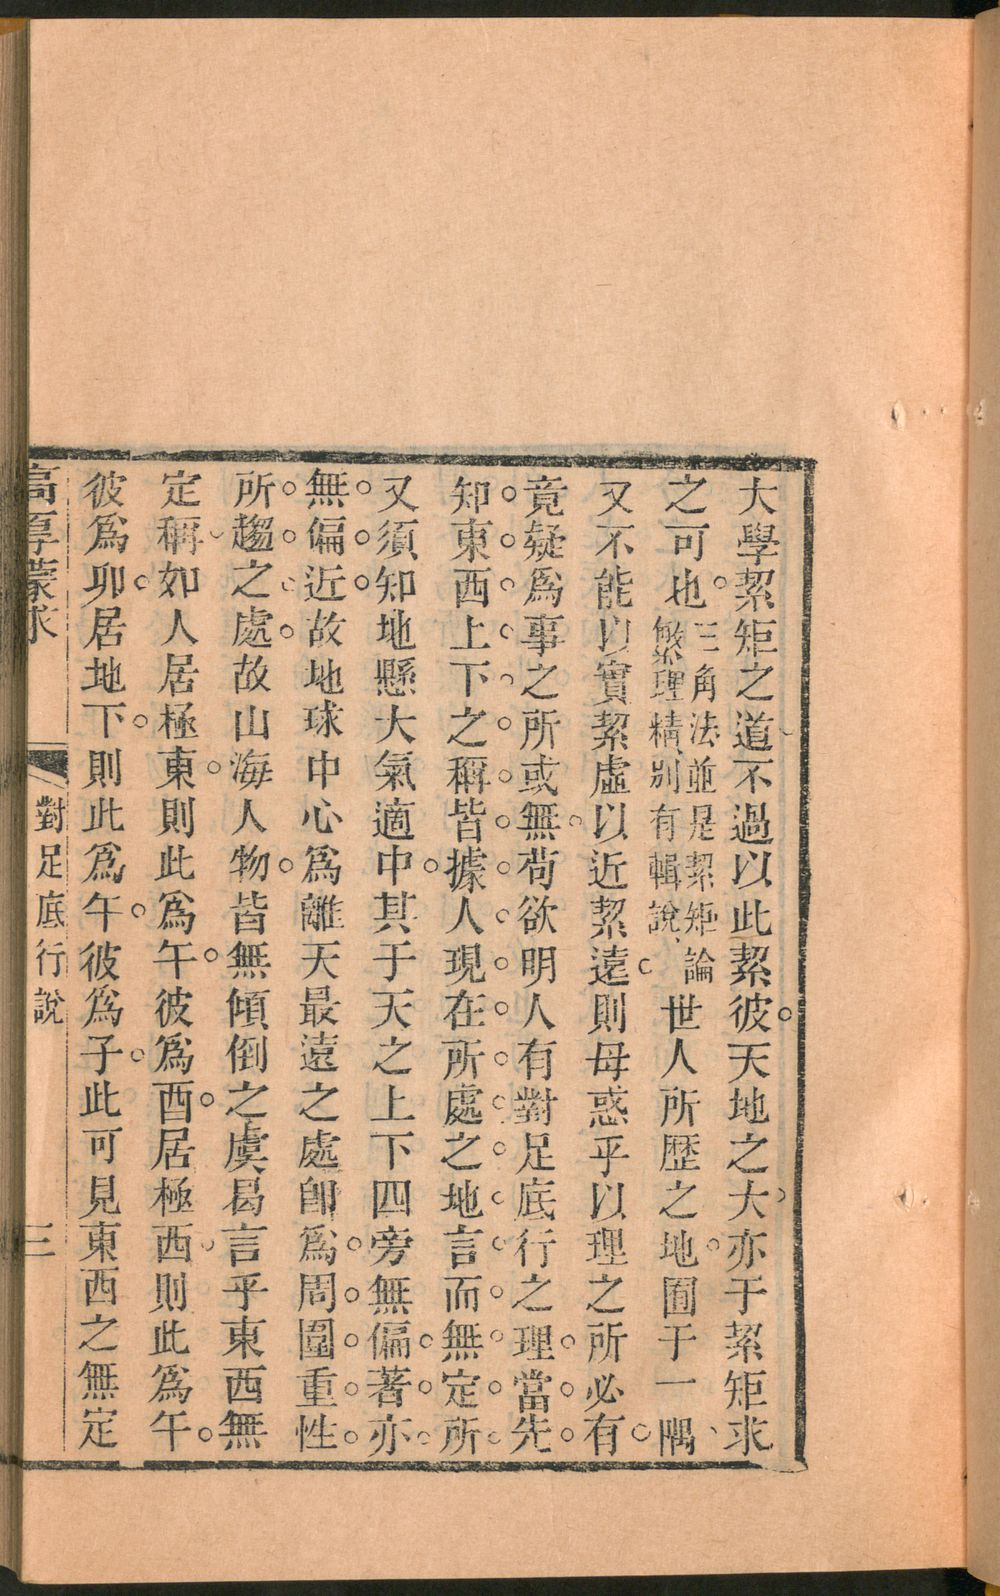 大學絜矩之道不過以此絜彼天地之大亦于絜矩求
之可也三角法並是絜矩論繁理精別有輯說世人所歷之地囿于一隅
又不能以實絜虛以近絜遠則毋惑乎以理之所必有
竟疑爲事之所或無苟欲明人有對足底行之理當先
知東西上下之稱皆據人現在所處之地言而無定所
又須知地懸大氣適中其于天之上下四旁無偏著亦
無偏近故地球中心爲離天最遠之處卽爲周圍重性
所趨之處故山海人物皆無傾倒之虞曷言乎東西無
定稱如人居極東則此爲午彼爲酉居極西則此爲午
彼爲卯居地下則此爲午彼爲子此可見東西之無定
高厚蒙求
對足底行說
三